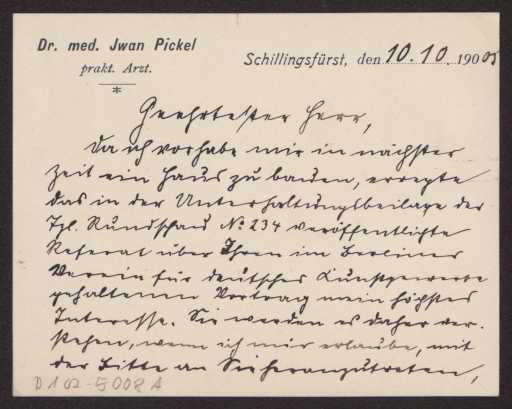 Dr. med. Jwan Pickel
prakt. Arzt.
Schillingsfürst, den 10.10.1905
Geehrtester Herr,
Da ich vorhabe mir in nächster
Zeit ein Haus zu bauen, erregte
das in der Unterhaltungsbeilage der
Tgl. Rundschau No 234 veröffentlichte
Referat über Ihren im Berliner
Verein für deutsches Kunstgewerbe
gehaltenen Vortrag mein höchstes
Interesse. Sie werden es daher ver-
stehen, wenn ich mir erlaube, mit
der Bitte an Sie heranzutreten,
D 102-5008 A